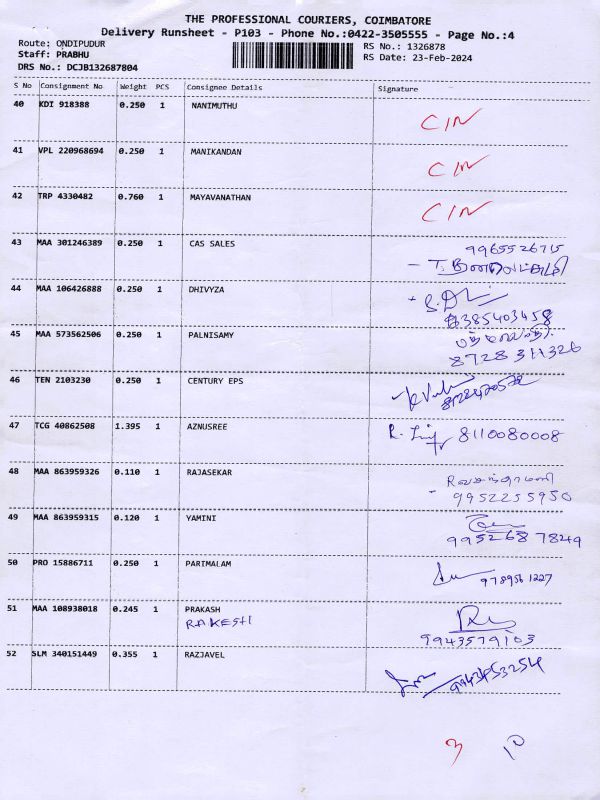 THE PROFESSIONAL COURIERS, COIMBATORE
Delivery Runsheet - P103 - Phone No.:0422-3505555 - Page No.:4
Route: ONDIPUDUR
RS No.: 1326878
Staff: PRABHU
RS Date: 23-Feb-2024
DRS No.: DCJB132687804
S No Consignment No Weight PCS Consignee Details Signature
40 KDI 918388 0.250 1 NANIMUTHU
CIN
41 VPL 220968694 0.250 1 MANIKANDAN
CIN
42 TRP 4330482 0.760 1 MAYAVANATHAN
CIN
43 MAA 301246389 0.250 1 CAS SALES
9965526715
44 MAA 106426888 0.250 1 DHIVYZA
45 MAA 573562506 0.250 1 PALNISAMY
8728 311326
46 TEN 2103230 0.250 1 CENTURY EPS
47 TCG 40862508 1.395 1 AZNUSREE
8110080008
48 MAA 863959326 0.110 1 RAJASEKAR
9952255950
49 MAA 863959315 0.120 1 YAMINI
9952687849
50 PRO 15886711 0.250 1 PARIMALAM
9789561227
51 MAA 108938018 0.245 1 PRAKASH
RAKESH
9943579103
52 SLM 340151449 0.355 1 RAZJAVEL
3 10